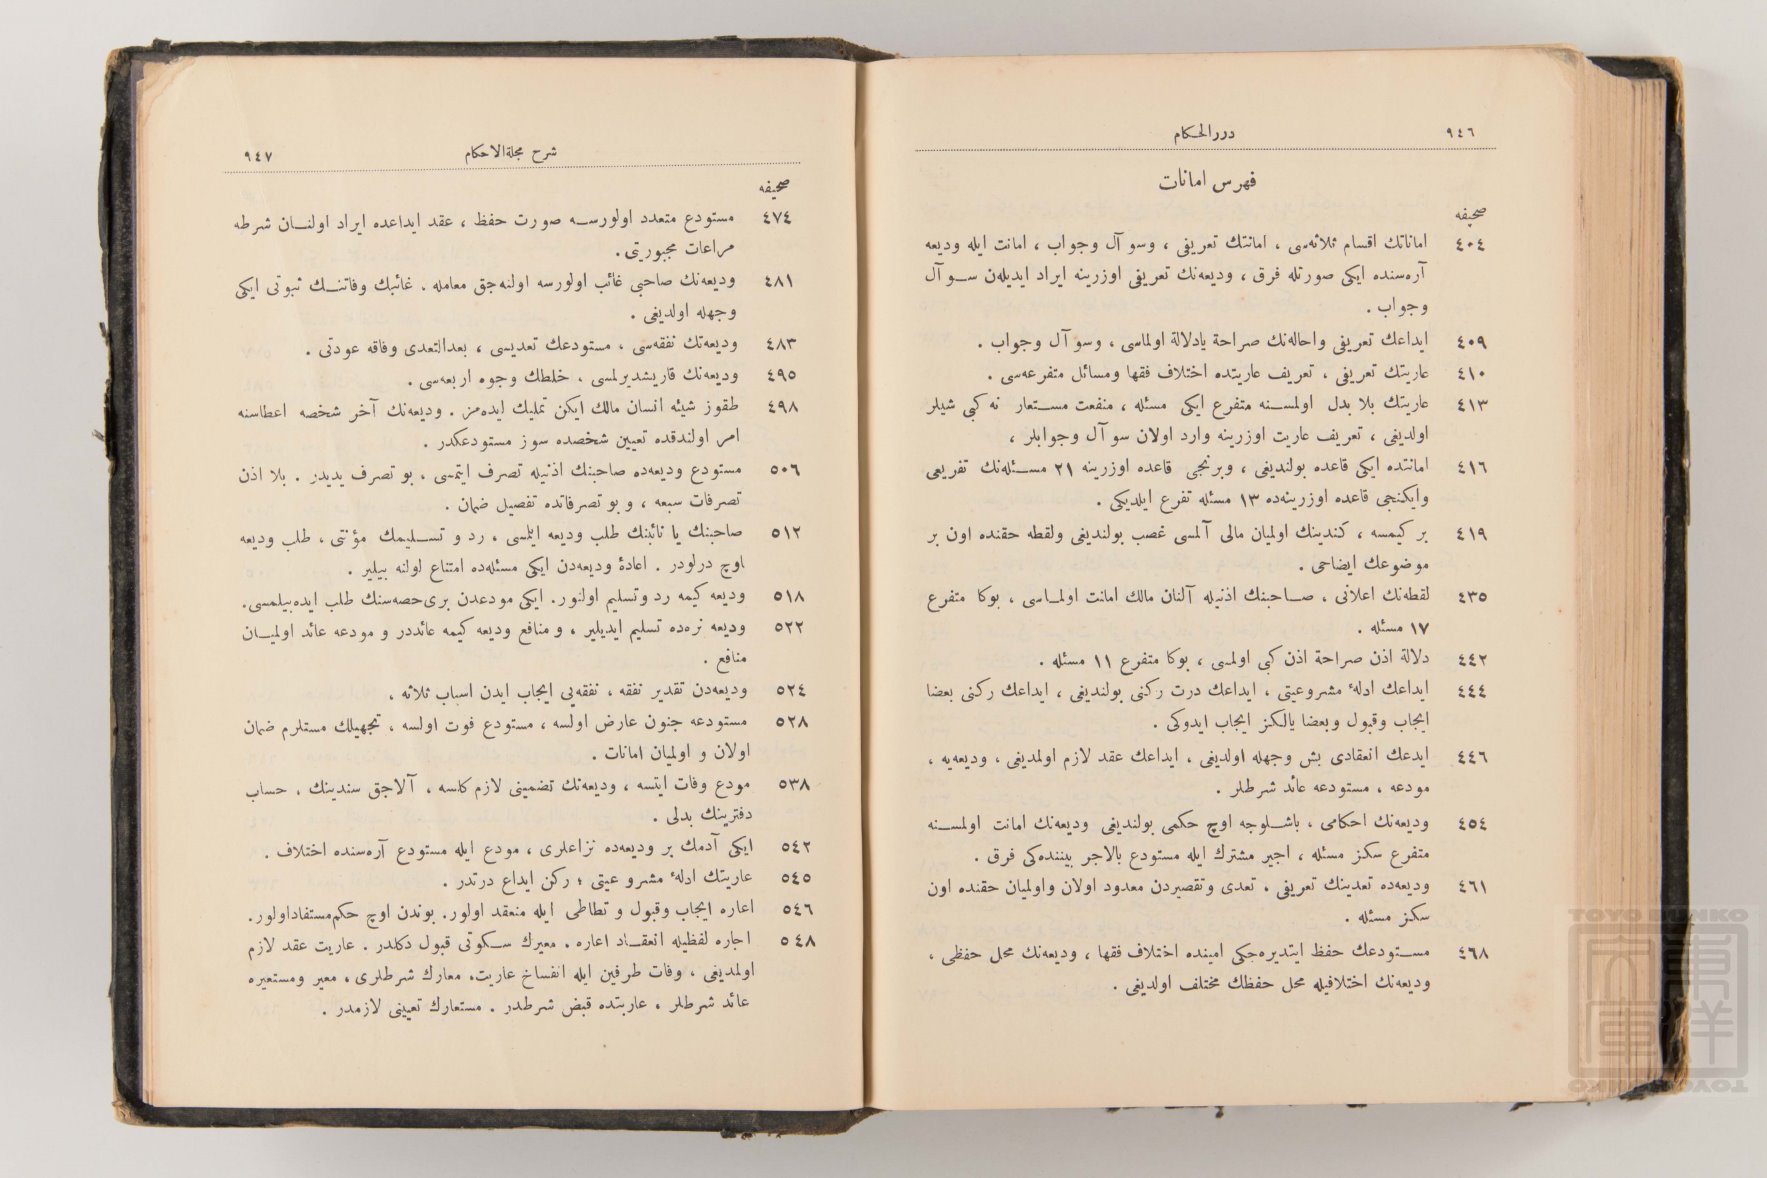 ٩٤٦
دررالحكام
فهرس امانات
صحيفه
٤٠٤ اماناتك اقسام ثلاثه‌سی ، امانتك تعريفی ، وسو آل وجواب ، امانت ايله وديعه
آره‌سنده ايكی صورتله فرق ، وديعه‌نك تعريفی اوزرينه ايراد ايديله‌ن سو آل
وجواب .
٤٠٩ ايداعك تعريفی واحاله‌نك صراحة يادلالة اولماسی ، وسو آل وجواب .
٤١٠ عاريتك تعريفی ، تعريف عاريتده اختلاف فقها ومسائل متفرعه‌سی .
٤١٣ عاريتك بلا بدل اولمسنه متفرع ايكی مسئله ، منفعت مستعار نه كبی شيلر
اولديغی ، تعريف عاريت اوزرينه وارد اولان سو آل وجوابلر ،
٤١٦ امانتده ايكی قاعده بولنديغی ، وبرنجی قاعده اوزرينه ٢١ مسئله‌نك تفريعی
وايكنجی قاعده اوزرينه‌ده ١٣ مسئله تفرع ايلديكی .
٤١٩ بر كيمسه ، كندينك اولميان مالی آلمسی غصب بولنديغی ولقطه حقنده اون بر
موضوعك ايضاحی .
٤٣٥ لقطه‌نك اعلانی ، صاحبنك اذنيله آلنان مالك امانت اولماسی ، بوكا متفرع
١٧ مسئله .
٤٤٢ دلالة اذن صراحة اذن كبی اولمسی ، بوكا متفرع ١١ مسئله .
٤٤٤ ايداعك ادلهٔ مشروعيتی ، ايداعك درت ركنی بولنديغی ، ايداعك ركنی بعضا
ايجاب وقبول وبعضا يالكز ايجاب ايدوكی .
٤٤٦ ايدعك انعقادی بش وجهله اولديغی ، ايداعك عقد لازم اولمديغی ، وديعه‌يه ،
مودعه ، مستودعه عائد شرطلر .
٤٥٤ وديعه‌نك احكامی ، باشلوجه اوچ حكمی بولنديغی وديعه‌نك امانت اولمسنه
متفرع سكز مسئله ، اجير مشترك ايله مستودع بالاجر بيننده‌كی فرق .
٤٦١ وديعه‌ده تعدينك تعريفی ، تعدی وتقصيردن معدود اولان واولميان حقنده اون
سكز مسئله .
٤٦٨ مستودعك حفظ ايتديره‌جكی امينده اختلاف فقها ، وديعه‌نك محل حفظی ،
وديعه‌نك اختلافيله محل حفظك مختلف اولديغی .
شرح مجلةالاحكام
٩٤٧
صحيفه
٤٧٤ مستودع متعدد اولورسه صورت حفظ ، عقد ايداعده ايراد اولنان شرطه
مراعات مجبوريتی .
٤٨١ وديعه‌نك صاحبی غائب اولورسه اولنه‌جق معامله . غائبك وفاتنك ثبوتی ايكی
وجهله اولديغی .
٤٨٣ وديعه‌نك نفقه‌سی ، مستودعك تعديسی ، بعدالتعدی وفاقه عودتی .
٤٩٥ وديعه‌نك قاريشديرلمسی ، خلطك وجوه اربعه‌سی .
٤٩٨ طقوز شيئه انسان مالك ايكن تمليك ايده‌مز . وديعه‌نك آخر شخصه اعطاسنه
امر اولندقده تعيين شخصده سوز مستودعكدر .
٥٠٦ مستودع وديعه‌ده صاحبنك اذنيله تصرف ايتمسی ، بو تصرف يديدر . بلا اذن
تصرفات سبعه ، و بو تصرفاتده تفصيل ضمان .
٥١٢ صاحبنك يا نائبنك طلب وديعه ايلمسی ، رد و تسليمك مؤنتی ، طلب وديعه
اوچ درلودر . اعادهٔ وديعه‌دن ايكی مسئله‌ده امتناع اولنه بيلير .
٥١٨ وديعه كيمه رد وتسليم اولنور. ايكی مودعدن بری‌حصه‌سنك طلب ايده‌بيلمسی.
٥٢٢ وديعه نره‌ده تسليم ايديلير ، و منافع وديعه كيمه عائددر و مودعه عائد اولميان
منافع .
٥٢٤ وديعه‌دن تقدير نفقه ، نفقه‌يی ايجاب ايدن اسباب ثلاثه .
٥٢٨ مستودعه جنون عارض اولسه ، مستودع فوت اولسه ، تجهيلك مستلزم ضمان
اولان و اولميان امانات .
٥٣٨ مودع وفات ايتسه ، وديعه‌نك تضمينی لازم كلسه ، آلاجق سندينك . حساب
دفترينك بدلی .
٥٤٢ ايكی آدمك بر وديعه‌ده نزاعلری ، مودع ايله مستودع آره‌سنده اختلاف .
٥٤٥ عاريتك ادلهٔ مشروعيتی ؛ ركن ايداع درتدر .
٥٤٦ اعاره ايجاب وقبول و تطاطی ايله منعقد اولور. بوندن اوچ حكم‌مستفاداولور.
٥٤٨ اجاره لفظيله انعقاد اعاره . معيرك سكوتی قبول دكلدر . عاريت عقد لازم
اولمديغی ، وفات طرفين ايله انفساخ عاريت، معارك شرطلری ، معير ومستعيره
عائد شرطلر ، عاريتده قبض شرطدر . مستعارك تعيينی لازمدر .
TOYO BUNKO
東洋文庫